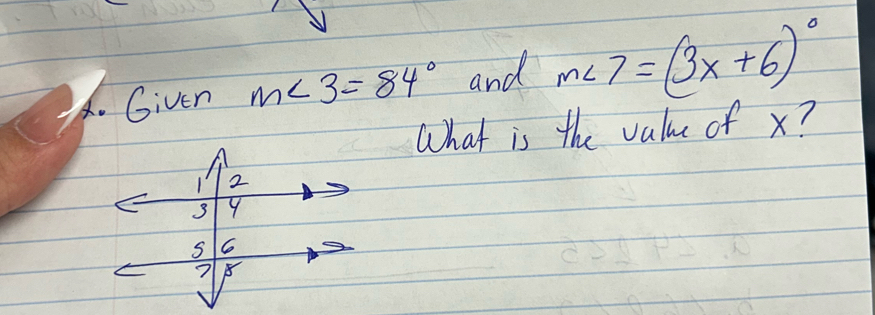 Given m<3=84° and m<7=(3x+6)°
What is the value of x?
1 2
3 4
5 6
7 8